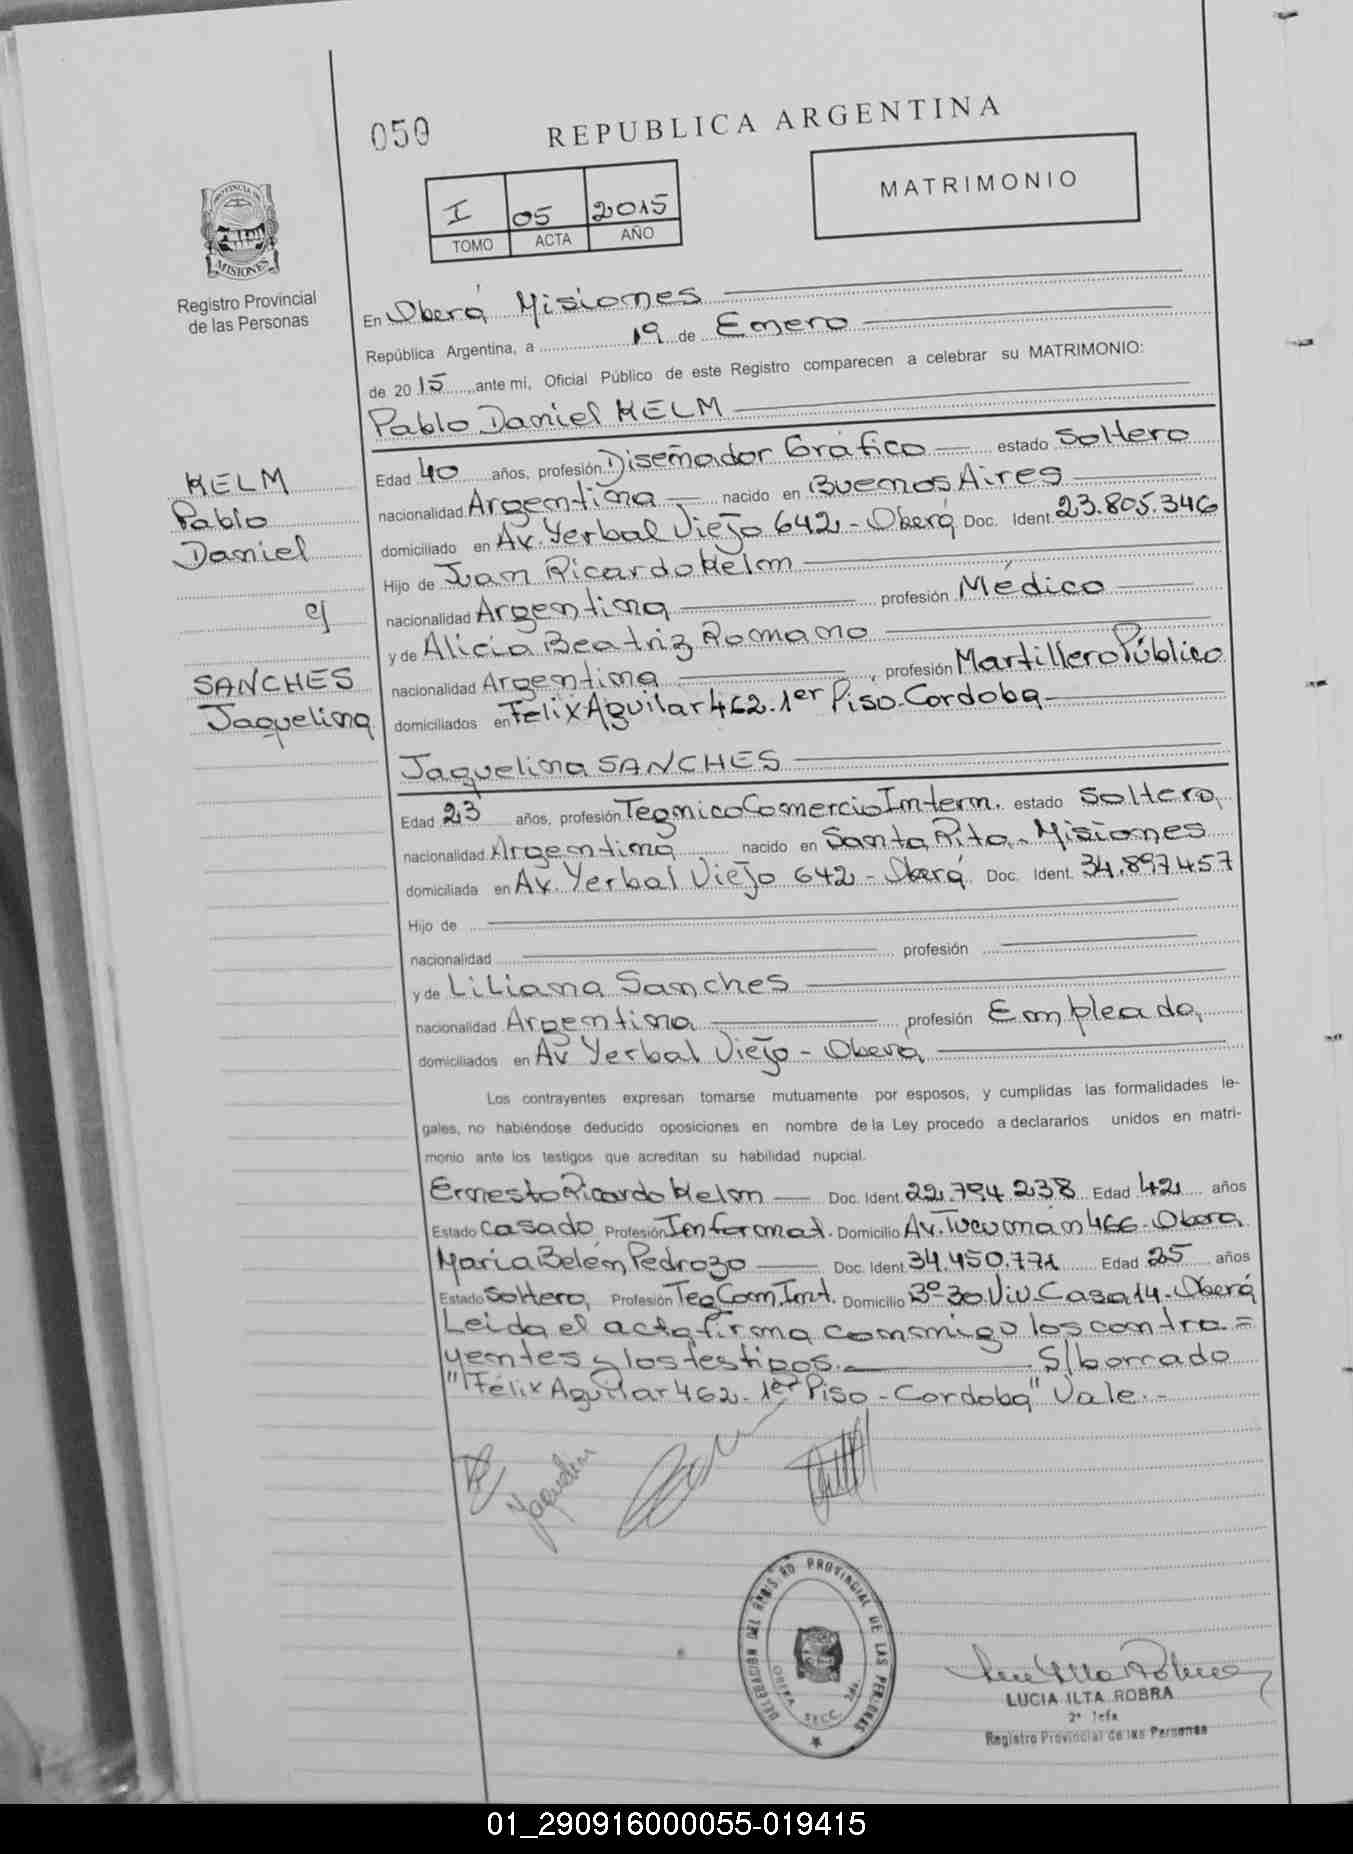 050
REPUBLICA ARGENTINA
MATRIMONIO
I 05 2015
TOMO ACTA AÑO
PROVINCIA DE
MISIONES
Registro Provincial
de las Personas
En Oberá Misiones
República Argentina, a 19 de Enero
de 2015, ante mi, Oficial Público de este Registro comparecen a celebrar su MATRIMONIO:
Pablo Daniel KELM
Edad 40 años, profesión Diseñador Gráfico estado Soltero
nacionalidad Argentina nacido en Buenos Aires
domiciliado en Av. Yerbal Viejo 642 - Oberá Doc. Ident. 23.805.346
Hijo de Juan Ricardo Kelm
nacionalidad Argentina profesión Médico
y de Alicia Beatriz Romano
nacionalidad Argentina, profesión Martillero Público
domiciliados en Felix Aguilar 462. 1er Piso. Cordoba
KELM
Pablo
Daniel
c/
SANCHES
Jaquelina
Jaquelina SANCHES
Edad 23 años, profesión Tegnico Comercio Intern. estado Soltera
nacionalidad Argentina nacido en Santa Rita - Misiones
domiciliada en Av. Yerbal Viejo 642 - Oberá Doc. Ident. 34.897.457
Hijo de
nacionalidad profesión
y de Liliana Sanches
nacionalidad Argentina profesión Empleada
domiciliados en Av Yerbal Viejo - Oberá
Los contrayentes expresan tomarse mutuamente por esposos, y cumplidas las formalidades le-
gales, no habiéndose deducido oposiciones en nombre de la Ley procedo a declararlos unidos en matri-
monio ante los testigos que acreditan su habilidad nupcial.
Ernesto Ricardo Kelm Doc. Ident. 22.794.238 Edad 42 años
Estado Casado Profesión Informat. Domicilio Av. Tucumán 466 - Obera
Maria Belén Pedrozo Doc. Ident. 34.450.771 Edad 25 años
Estado Soltera Profesión Teg Com. Int. Domicilio 3º 30 Viv. Casa 14 - Oberá
Leida el acta firma conmigo los contra=
yentes y los testigos. S/borrado
"Felix Aguilar 462. 1er Piso - Cordoba" Vale.-
Jaquelin
DELEGACION DEL REGISTRO PROVINCIAL DE LAS PERSONAS
OBERA SECC. 2da.
LUCIA ILTA ROBRA
2ª Jefa
Registro Provincial de las Personas
01_290916000055-019415